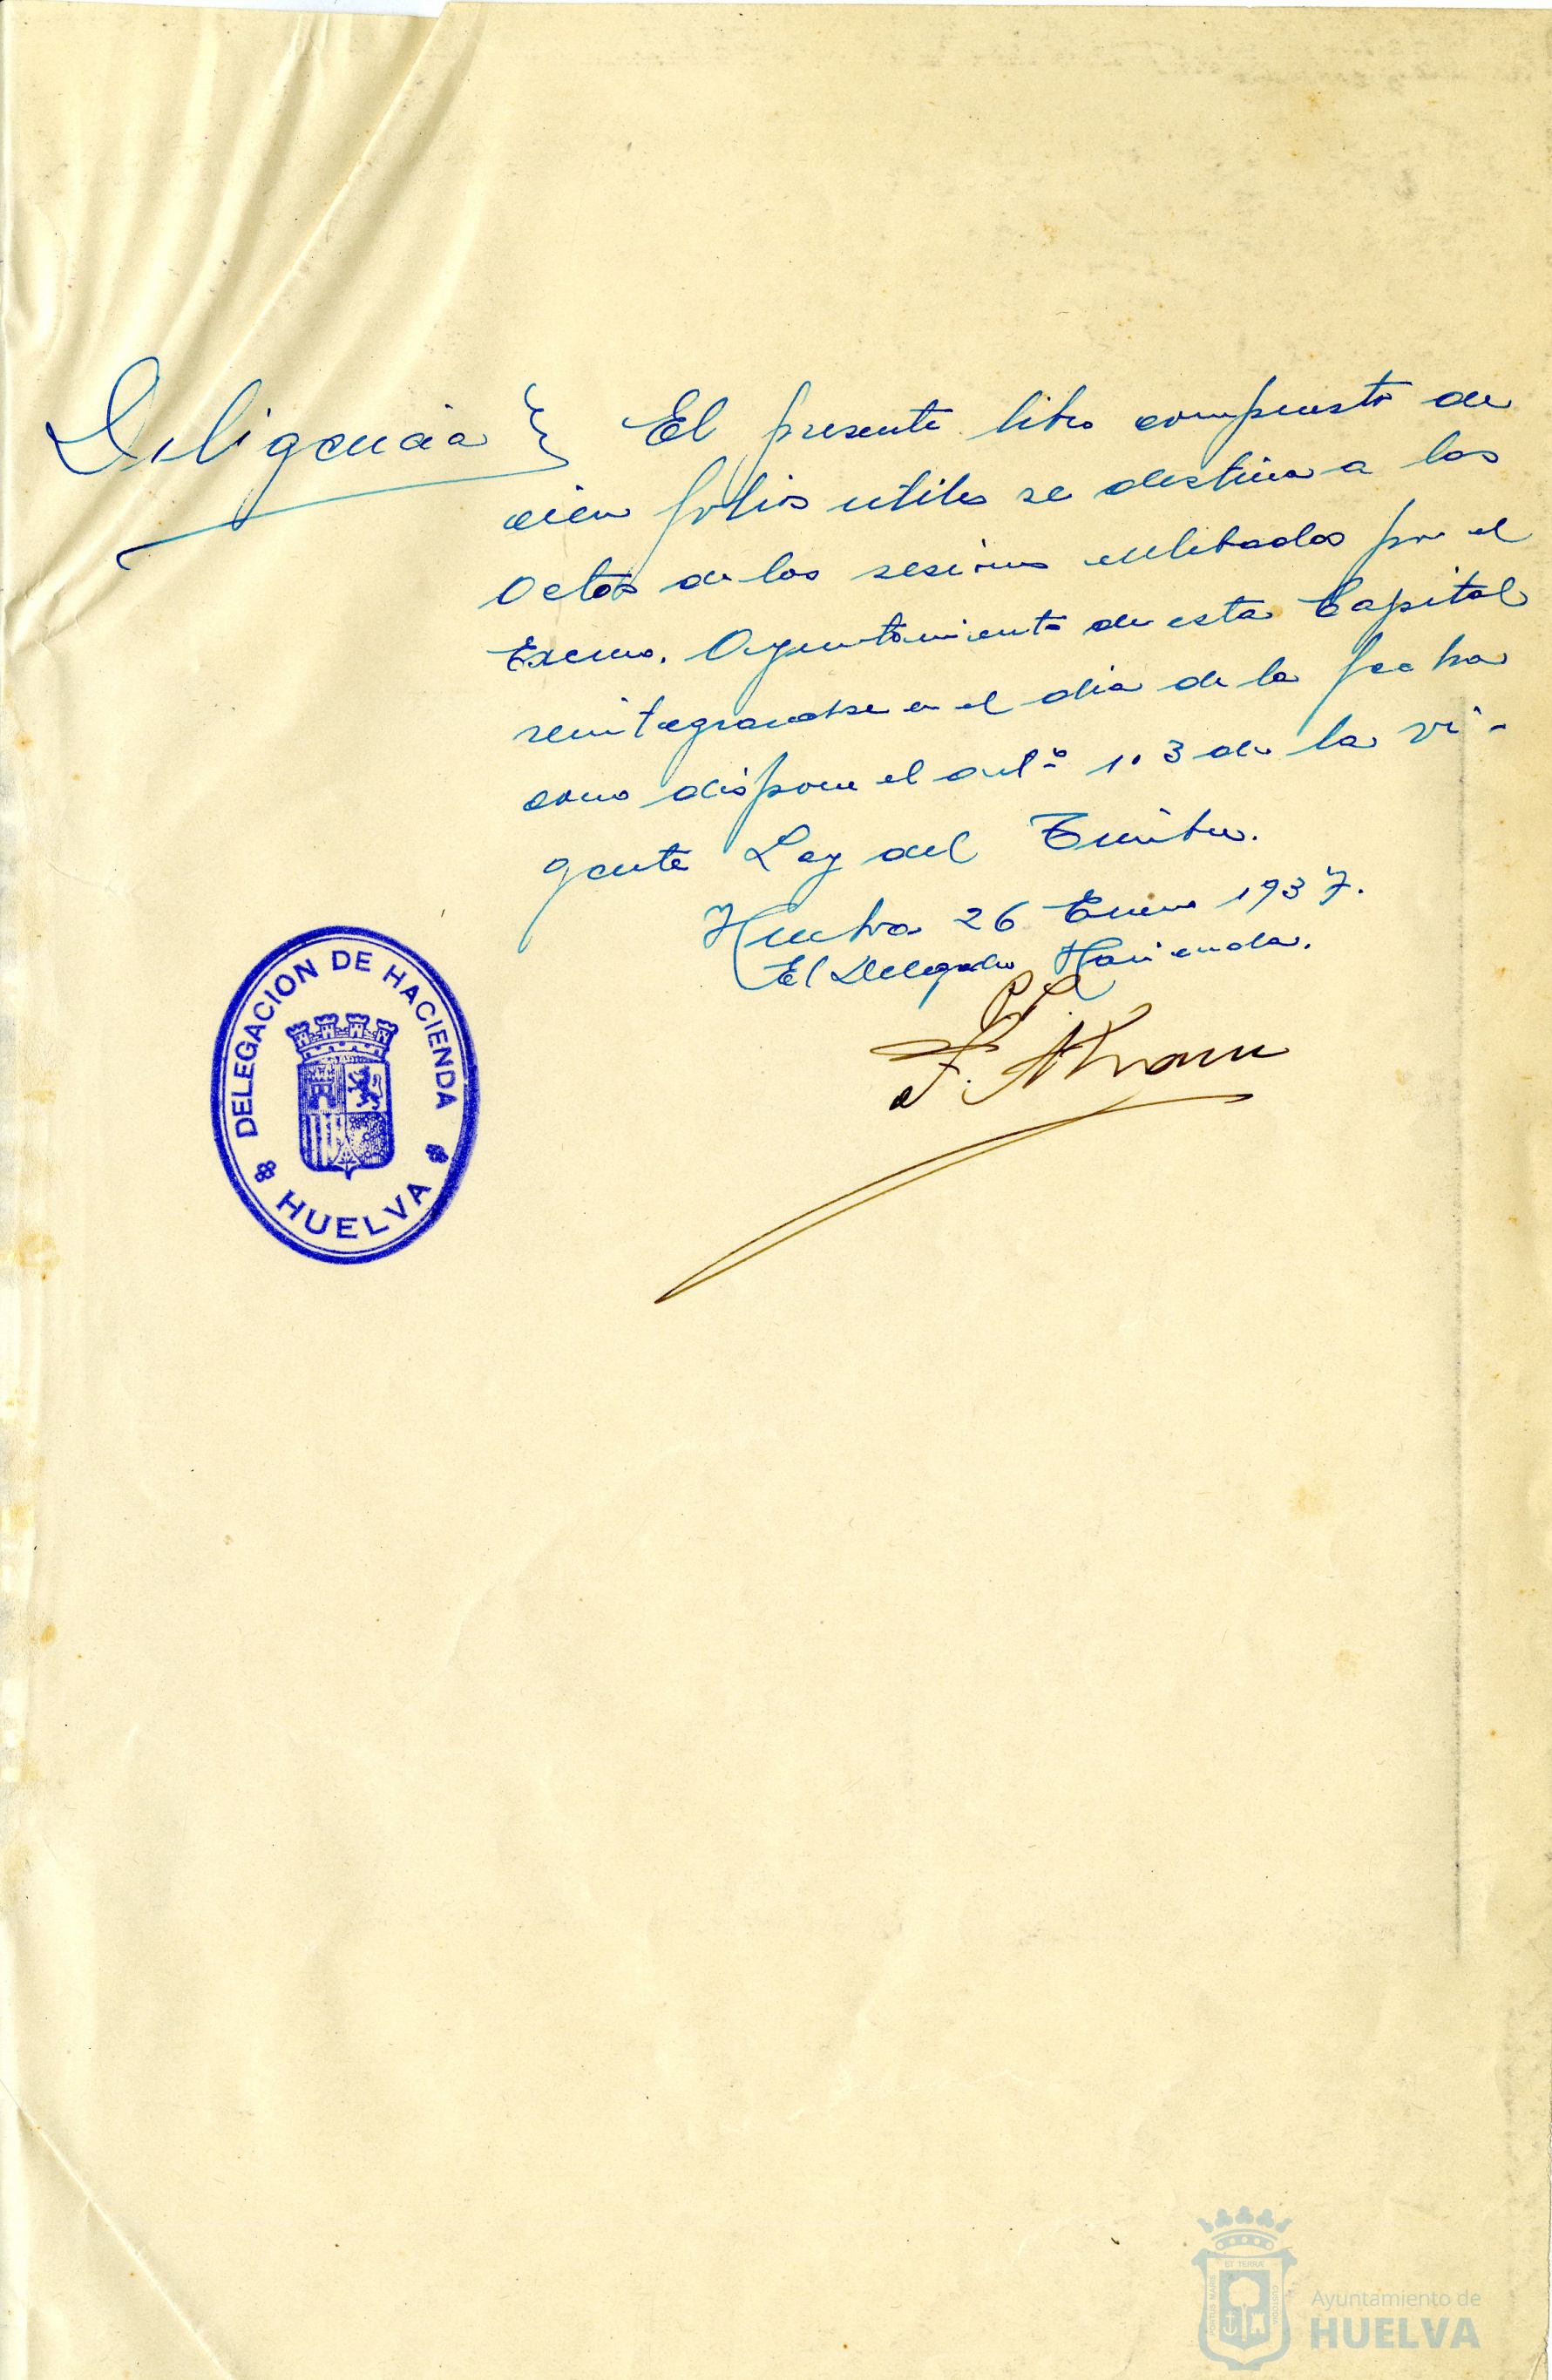 Diligencia } El presente libro compuesto de
cien folios utiles se destina a las
Actas de las sesiones celebradas por el
Excmo. Ayuntamiento de esta Capital
reintegrandose en el dia de la fecha
como dispone el artº 1.3 de la vi-
gente Ley del Timbre.
Huelva 26 Enero 1937.
El Delegado Hacienda.
DELEGACION DE HACIENDA
HUELVA
Ayuntamiento de
HUELVA